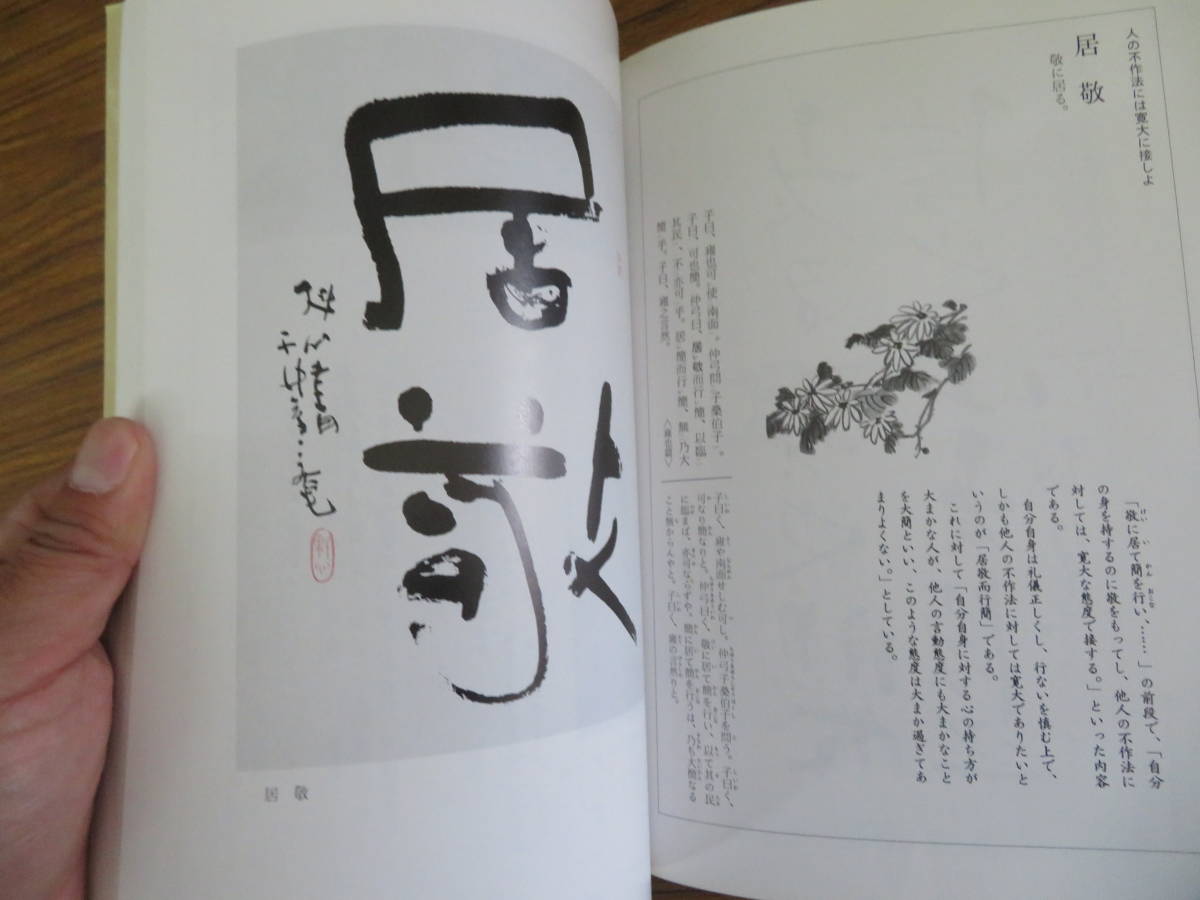 人の不作法には寛大に接しよ
居敬
敬に居る。
「敬に居て簡を行い、……」の前段で、「自分
の身を持するのに敬をもってし、他人の不作法に
対しては、寛大な態度で接する。」といった内容
である。
自分自身は礼儀正しくし、行ないを慎む上で、
しかも他人の不作法に対しては寛大でありたいと
いうのが「居敬而行簡」である。
これに対して「自分自身に対する心の持ち方が
大まかな人が、他人の言動態度にも大まかなこと
を大簡といい、このような態度は大まか過ぎてあ
まりよくない。」としている。
子曰、雍也可使南面。仲弓問子桑伯子。
子曰、可也簡。仲弓曰、居敬而行簡、以臨
其民、不亦可乎。居簡而行簡、無乃大
簡乎。子曰、雍之言然。
〈雍也篇〉
子曰く、雍や南面せしむ可し。仲弓子桑伯子を問う。子曰く、
可なり簡なりと。仲弓曰く、敬に居て簡を行い、以て其の民
に臨まば、亦可ならずや。簡に居て簡を行うは、乃ち大簡なる
こと無からんやと。子曰く、雍の言然りと。
居敬
居敬